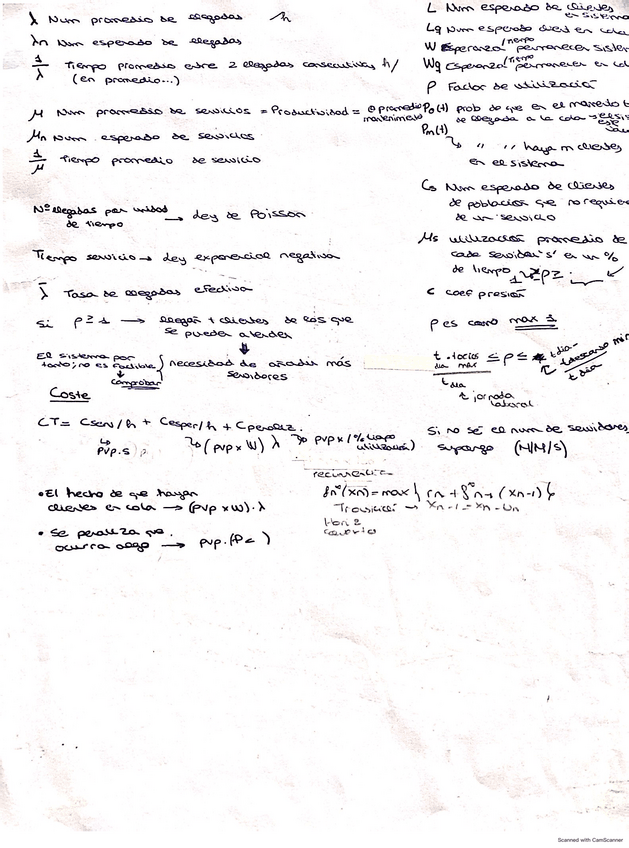 λ Num promedio de llegadas h
λn Num esperado de llegadas
1/λ Tiempo promedio entre 2 llegadas consecutivas h/
(en promedio...)
μ Num promedio de servicios = Productividad = @ promedio mantenimiento
μn Num esperado de servicios
1/μ Tiempo promedio de servicio
Nº llegadas por unidad de tiempo → Ley de Poisson
Tiempo servicio → Ley exponencial negativa
λ̄ Tasa de llegadas efectiva
Si ρ ≥ 1 → llegan + clientes de los que
se pueden atender
El sistema por
tanto, no es factible
comprobar
necesidad de añadir más
servidores
Coste
CT = Cserv/h + Cesper/h + Cpenaliz.
PVP.S
(PVP x W) λ
PVP x (% tiempo
utilización)
• El hecho de que hayan
clientes en cola → (PVP x W) . λ
• Se penaliza que
ocurra algo → PVP.(P< )
L Num esperado de clientes
en sistema
Lq Num esperado client en cola
W Esperanza tiempo permanecer sistem
Wq Esperanza tiempo permanecer en col
ρ Factor de utilización
P0(t) prob de que en el momento t
de llegada a la cola
Pn(t)
" " haya n clientes
en el sistema
Co Num esperado de clientes
de población que no requier
de un servicio
μs utilización promedio de
cada servidor 's' en un %
de tiempo
c coef presión
ρ es como max 1
t. ocios
dia max
t dia
≤ ρ ≤
t dia -
t descanso min
t dia
t jornada
laboral
Si no sé el num de servidores,
supongo (M/M/S)
fn°(Xn) = max { rn + f°n-1 (Xn-1) }
Xn-1 = Xn - Un